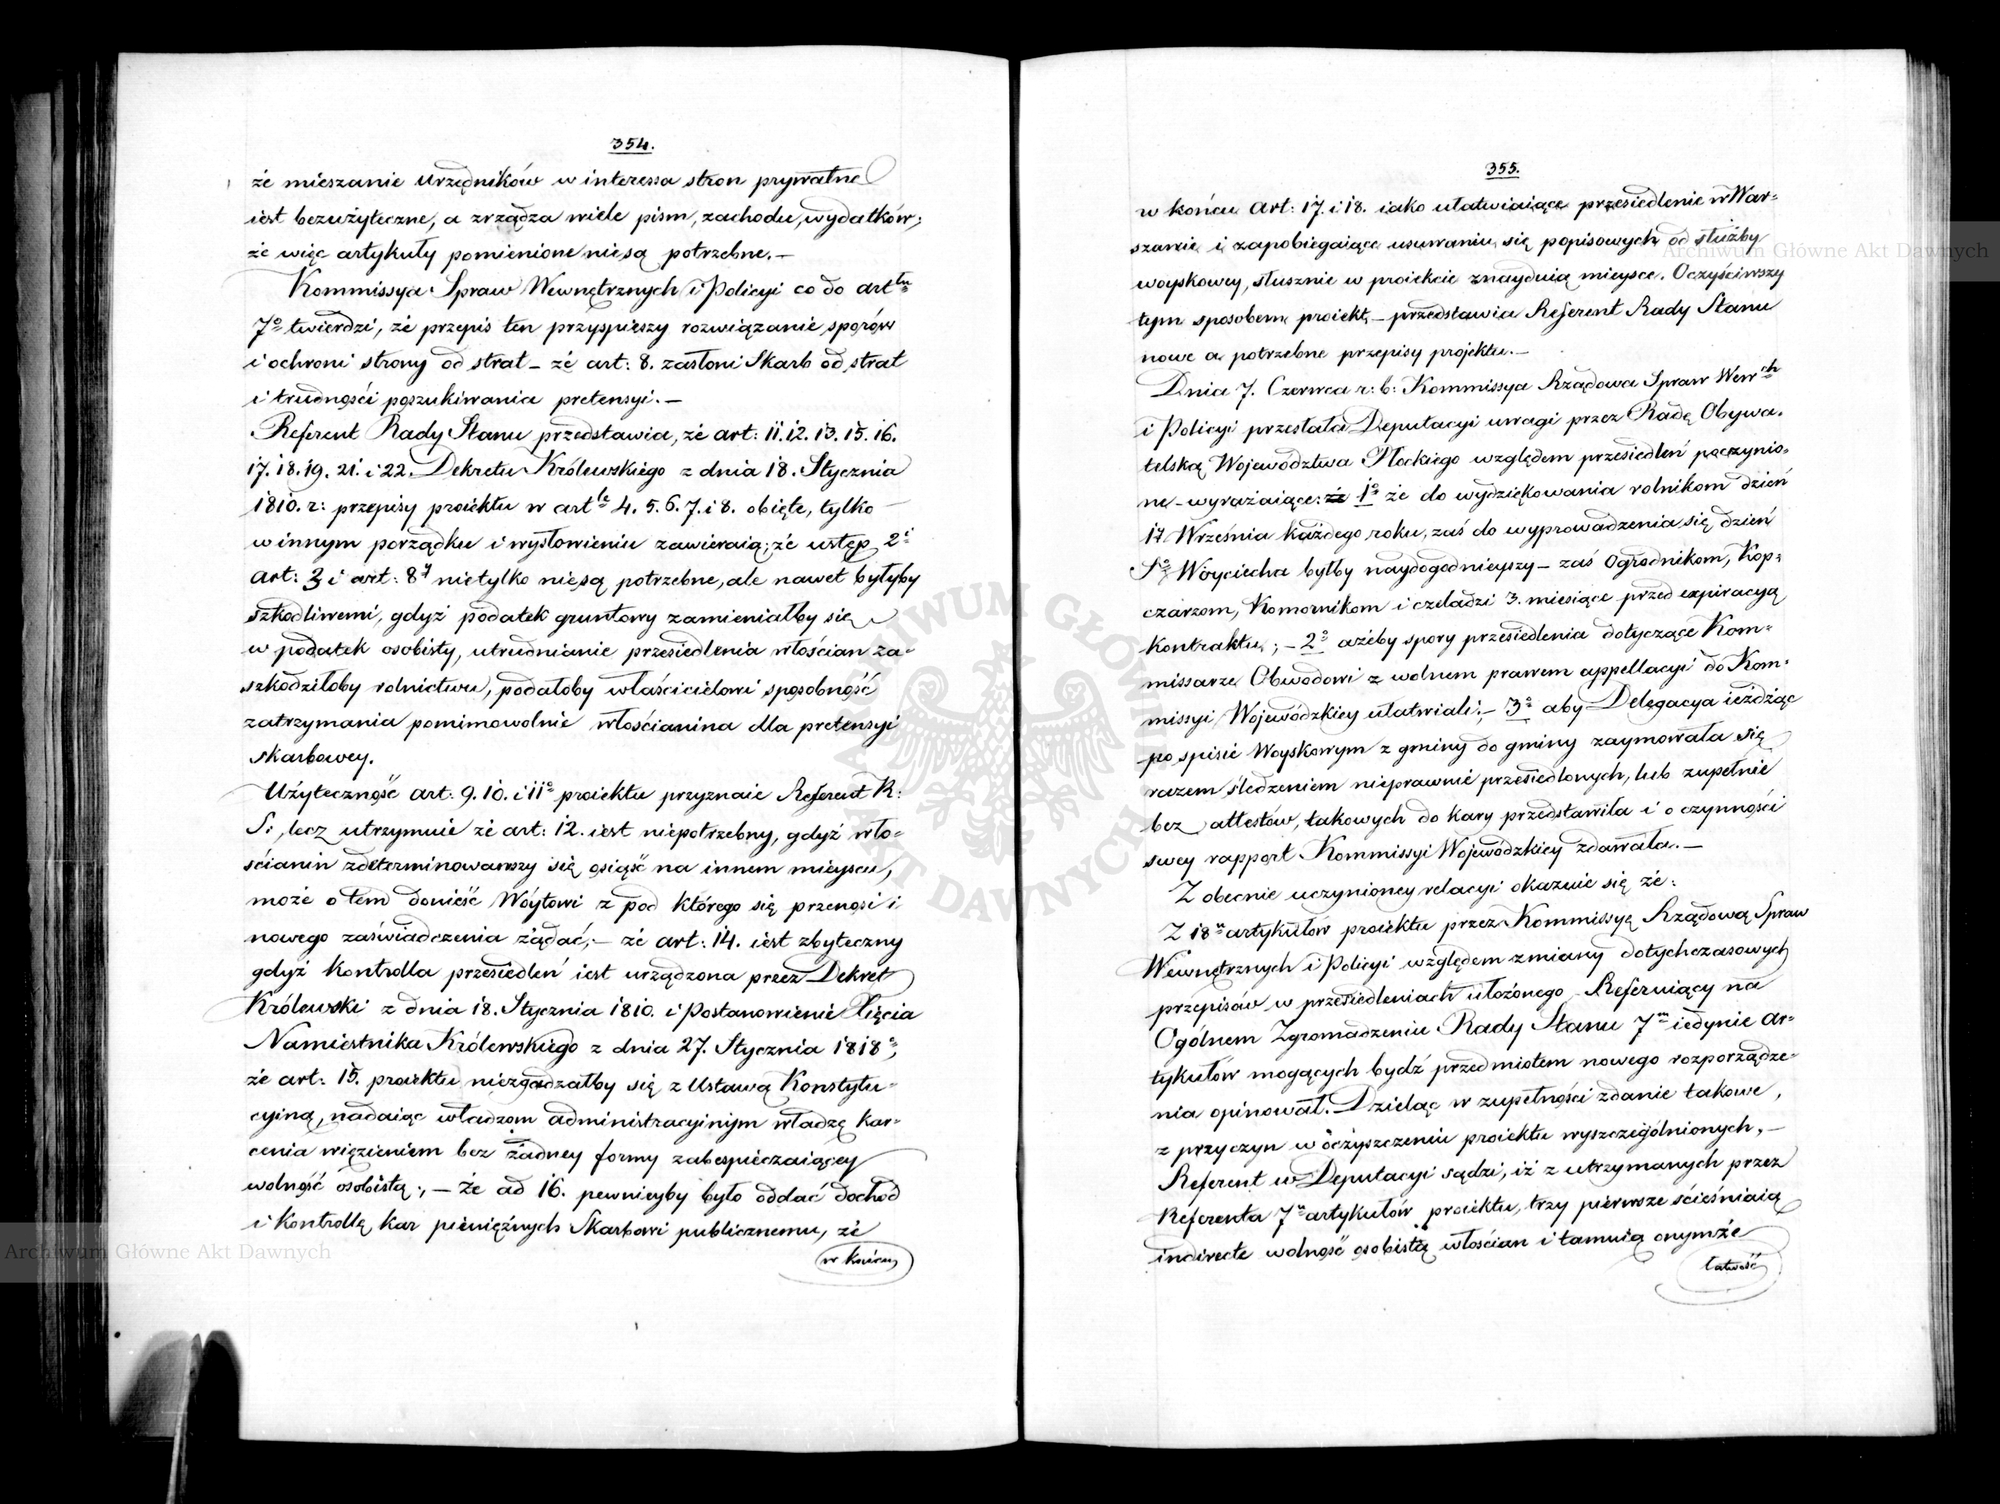 354.
że mieszanie urzędników w interessa stron prywatne
iest bezużyteczne, a zrządza wiele pism, zachodu, wydatków;
że więc artykuły pomienione nie są potrzebne. —
Kommissya Spraw Wewnętrznych i Policyi co do art<sup>łu</sup>
7° twierdzi, że przepis ten przyspieszy rozwiązanie sporów
i ochroni strony od strat — że art: 8. zasłoni Skarb od strat
i trudności poszukiwania pretensyi. —
Referent Rady Stanu przedstawia, że art: 11. 12. 13. 15. 16.
17. 18. 19. 21. i 22. Dekretu Królewskiego z dnia 18. Stycznia
1810. r: przepisy proiektu w art<sup>le</sup> 4. 5. 6. 7. i 8. obięte, tylko
w innym porządku i wysłowieniu zawieraią; że ustęp 2<sup>i</sup>
art: 3 i art: 8<sup>y</sup> nietylko nie są potrzebne, ale nawet byłyby
szkodliwemi, gdyż podatek gruntowy zamieniałby się
w podatek osobisty, utrudnianie przesiedlenia włościan za-
szkodziłoby rolnictwu, podałoby właścicielowi sposobność
zatrzymania pomimowolnie włościanina dla pretensyi
skarbowey.
Użyteczność art: 9. 10. i 11° proiektu przyznaie Referent R:
S:, lecz utrzymuie że art: 12. iest niepotrzebny, gdyż wło-
ścianin zdeterminowawszy się osiąść na innem mieyscu,
może o tem donieść Wóytowi z pod którego się przenosi i
nowego zaświadczenia żądać; — że art: 14. iest zbyteczny
gdyż kontrolla przesiedleń iest urządzona przez Dekret
Królewski z dnia 18. Stycznia 1810. i Postanowienie Xięcia
Namiestnika Królewskiego z dnia 27. Stycznia 1818°;
że art: 15. proiektu niezgadzałby się z Ustawą Konstytu-
cyiną, nadaiąc władzom administracyinym władzę kar-
cenia więzieniem bez żadney formy zabespieczaiącey
wolność osobistą; — że ad 16. pewnieyby było oddać dochód
i kontrollę kar pieniężnych Skarbowi publicznemu, że
w końcu
355.
w końcu art: 17. i 18. iako ułatwiaiące przesiedlenie w War-
szawie i zapobiegaiące usuwaniu się popisowych od służby
woyskowey, słusznie w proiekcie znayduią mieysce. Oczyściwszy
tym sposobem proiekt, — przedstawia Referent Rady Stanu
nowe a potrzebne przepisy projektu. —
Dnia 7. Czerwca r: b: Kommissya Rządowa Spraw Wew<sup>ch</sup>
i Policyi przesłała Deputacyi uwagi przez Radę Obywa-
telską Województwa Płockiego względem przesiedleń poczynio-
ne — wyrażaiące: że 1° że do wydziękowania rolnikom dzień
17 Września każdego roku, zaś do wyprowadzenia się dzień
S° Woyciecha byłby naydogodnieyszy — zaś Ogrodnikom, Kop-
czarzom, Komornikom i czeladzi 3. miesiące przed expiracyą
kontraktu; — 2° ażeby spory przesiedlenia dotyczące Kom-
missarze Obwodowi z wolnem prawem appellacyi do Kom-
missyi Wojewódzkiey ułatwiali; — 3° aby Delegacya ieżdżąc
po spisie Woyskowym z gminy do gminy zaymowała się
razem śledzeniem nieprawnie przesiedlonych, lub zupełnie
bez attestów, takowych do kary przedstawiła i o czynności
swey rapport Kommissyi Wojewódzkiey zdawała. —
Z obecnie uczynioney relacyi okazuie się że:
Z 18<sup>u</sup> artykułów proiektu przez Kommissyą Rządową Spraw
Wewnętrznych i Policyi względem zmiany dotychczasowych
przepisów w przesiedleniach ułożonego Referuiący na
Ogólnem Zgromadzeniu Rady Stanu 7<sup>m</sup> iedynie ar-
tykułów mogących bydź przedmiotem nowego rozporządze-
nia opinował. Dzieląc w zupełności zdanie takowe,
z przyczyn w oczyszczeniu proiektu wyszczególnionych, —
Referent w Deputacyi sądzi, iż z utrzymanych przez
Referenta 7<sup>u</sup> artykułów proiektu, trzy pierwsze ścieśniaią
indirecte wolność osobistą włościan i tamuią onymże
łatwość
Archiwum Główne Akt Dawnych
Archiwum Główne Akt Dawnych
ARCHIWUM GŁÓWNE AKT DAWNYCH